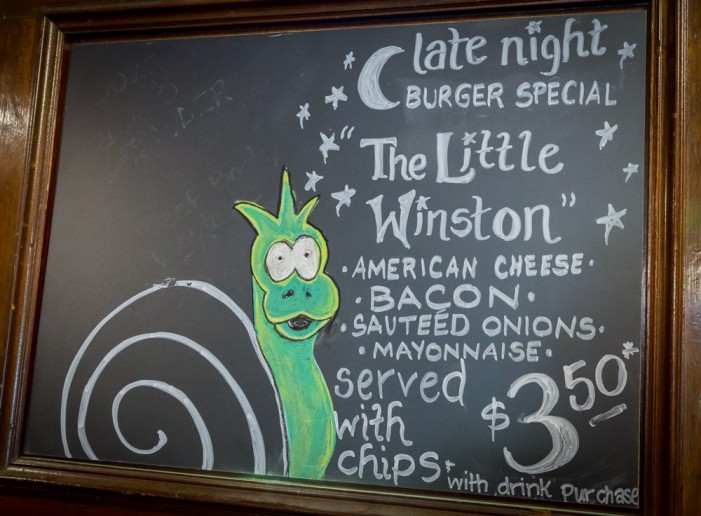 late night
BURGER SPECIAL
"The Little
Winston"
·AMERICAN CHEESE·
·BACON·
·SAUTEÉD ONIONS·
·MAYONNAISE·
served
with
chips*
$3.50*
*with drink purchase